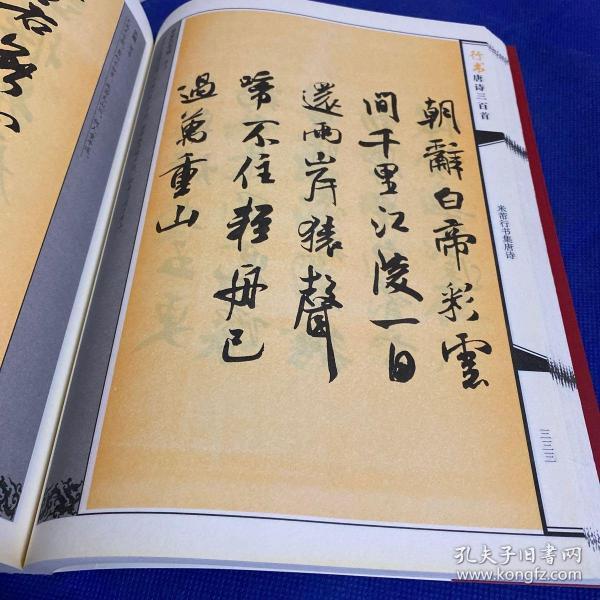 行书唐诗三百首
米芾行书集唐诗
三三三
朝辭白帝彩雲
間千里江陵一日
還兩岸猿聲
啼不住輕舟已
過萬重山
孔夫子旧书网
www.kongfz.com